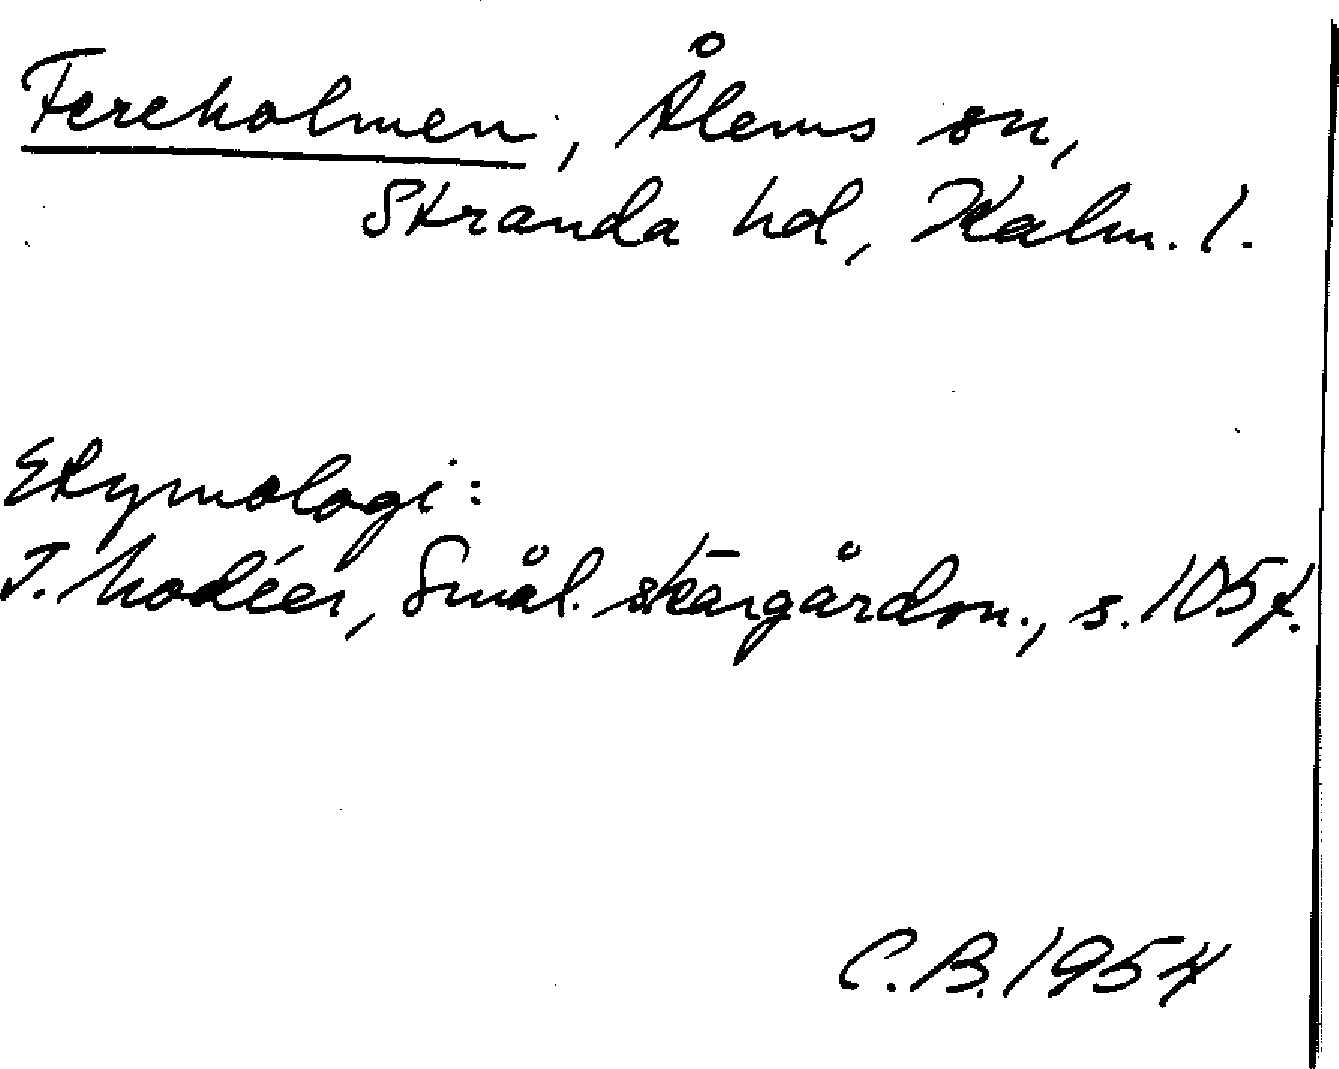 Fereholmen, Ålems sn,
Stranda hd, Kalm. l.
Etymologi:
I. Modéer, Smål. skärgårdsn., s. 105 f.
C.B. 1954